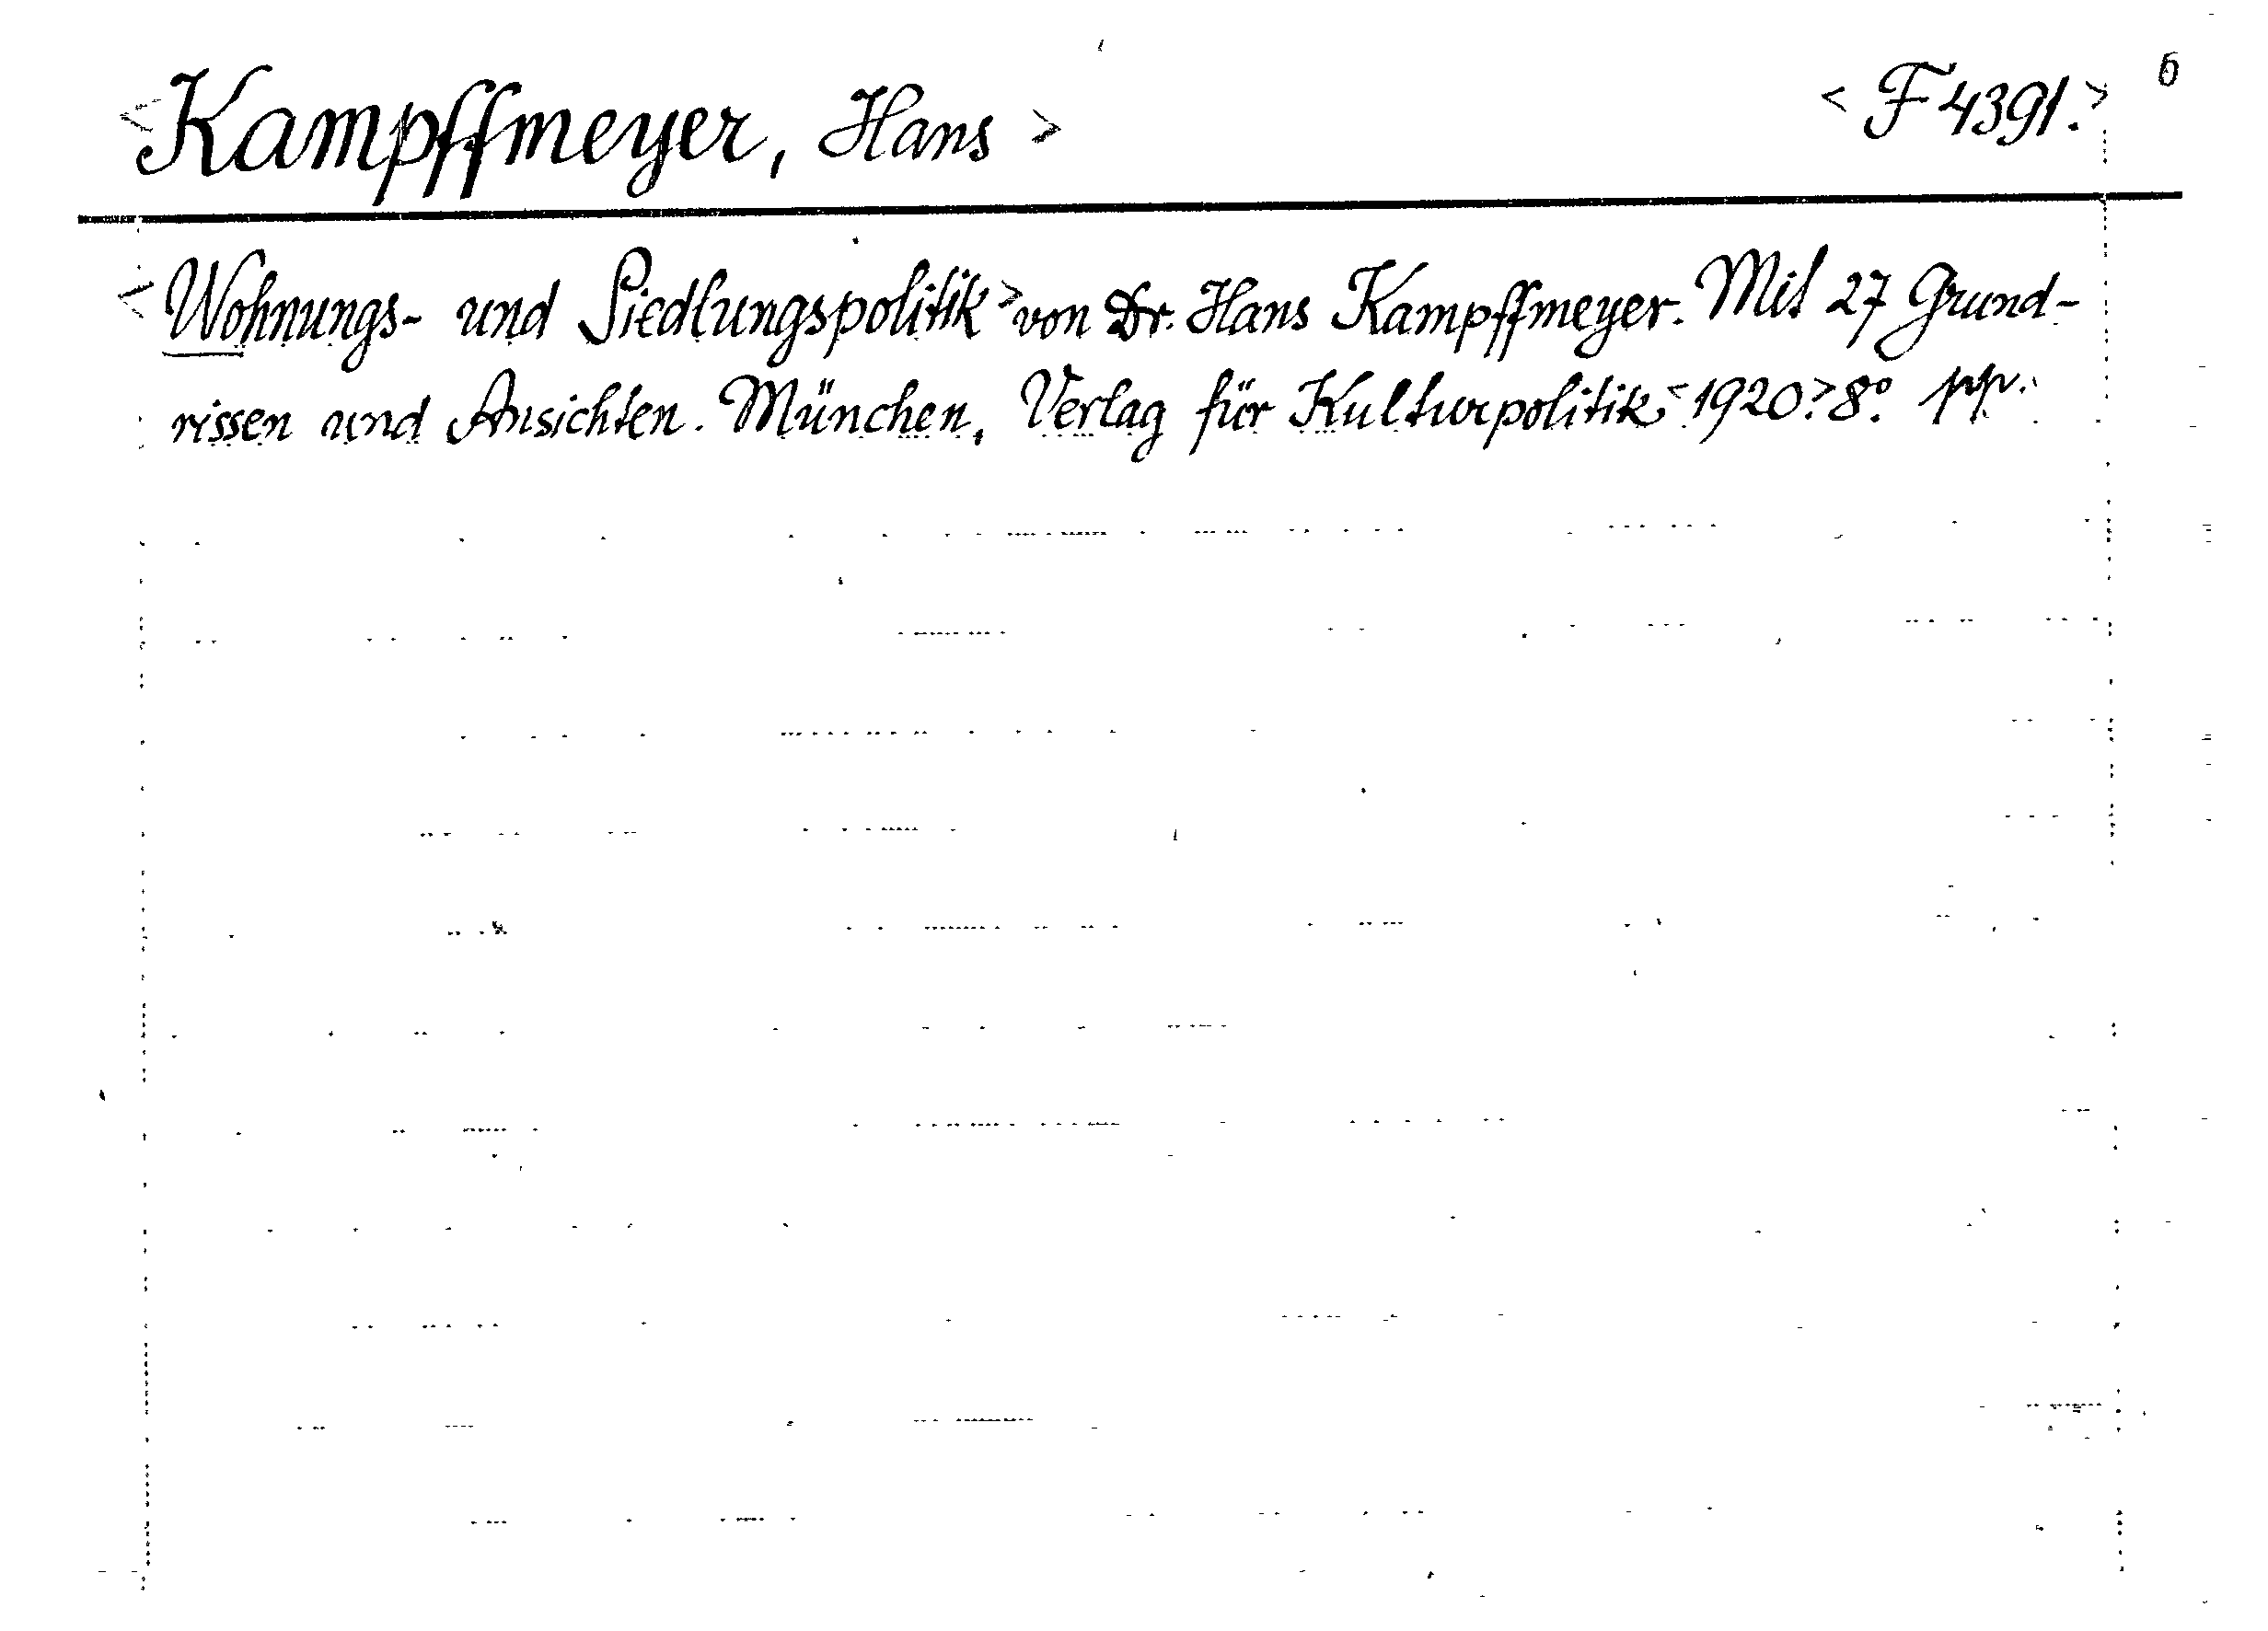 <Kampffmeyer, Hans> <F 4391.> 6
<Wohnungs- und Siedlungspolitik> von Dr. Hans Kampffmeyer. Mit 27 Grund-
rissen und Ansichten. München, Verlag für Kulturpolitik <1920.> 8º. pp.